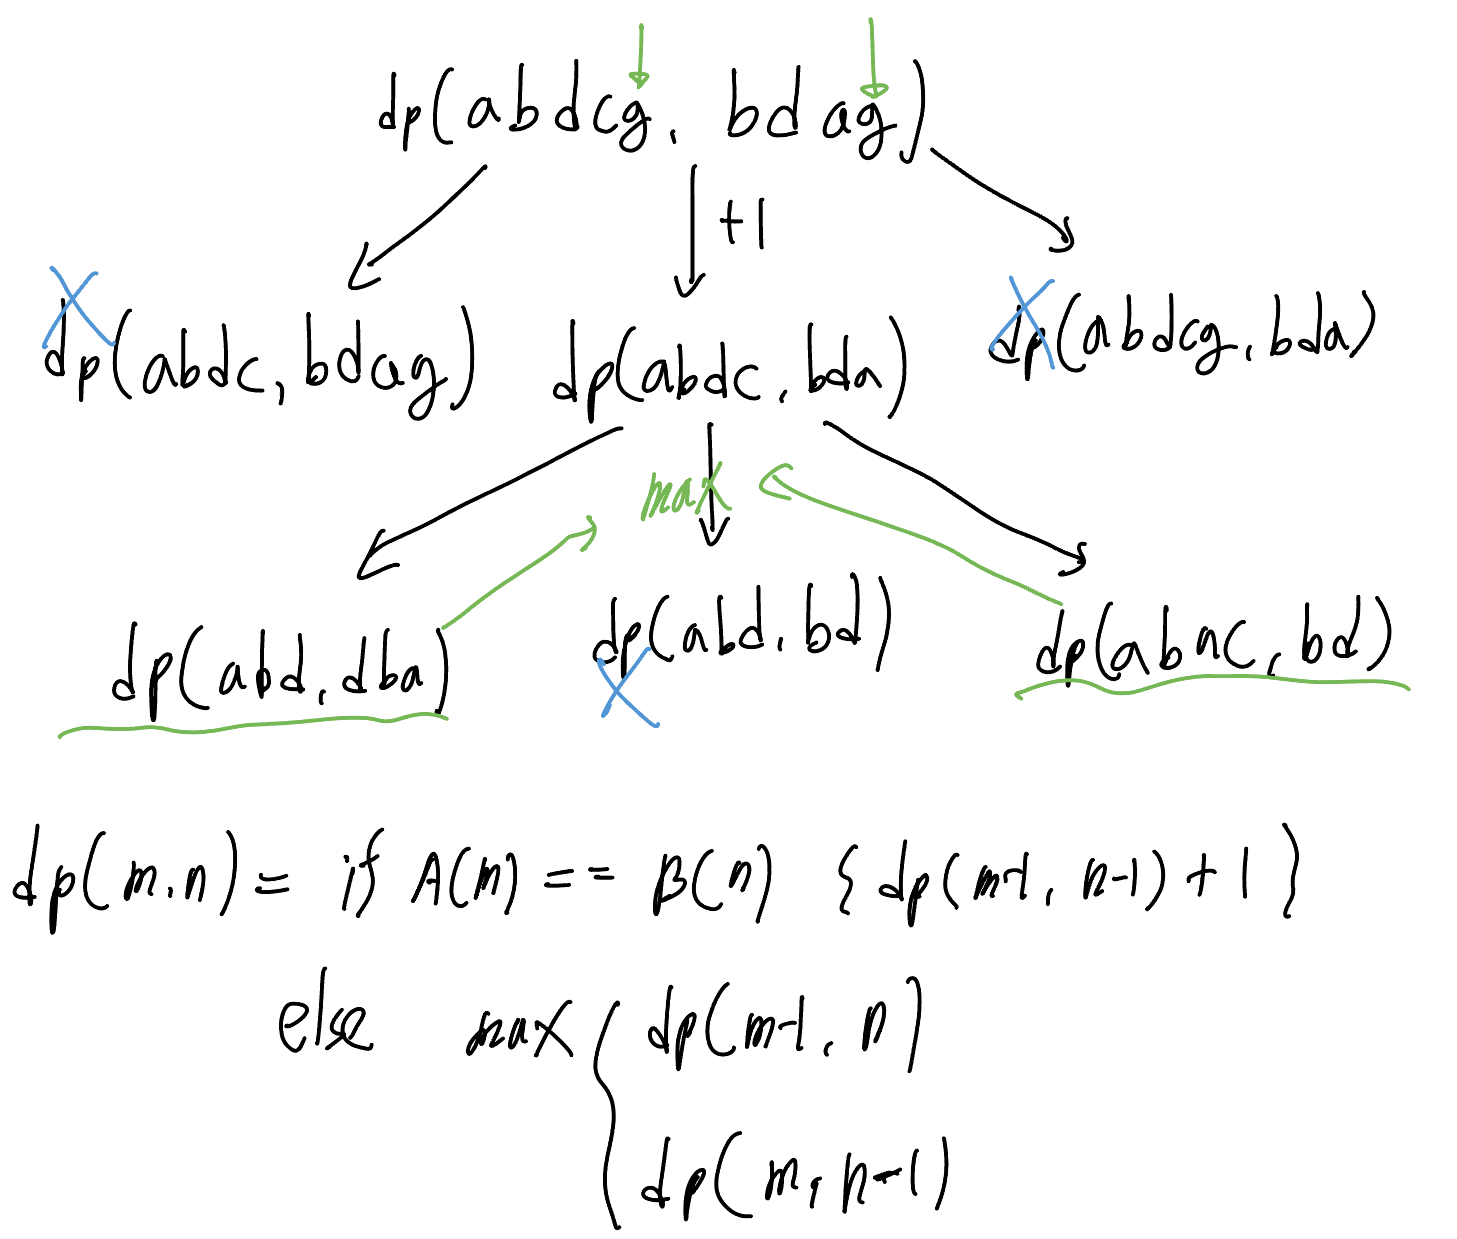 dp(abdcg, bdag)
+1
dp(abdc, bdag) dp(abdc, bda) dp(abdcg, bda)
max
dp(abd, dba) dp(abd, bd) dp(abnc, bd)
dp(m,n) = if A(m) == B(n) {dp(m-1, n-1) + 1}
else max { dp(m-1, n)
dp(m, n-1)